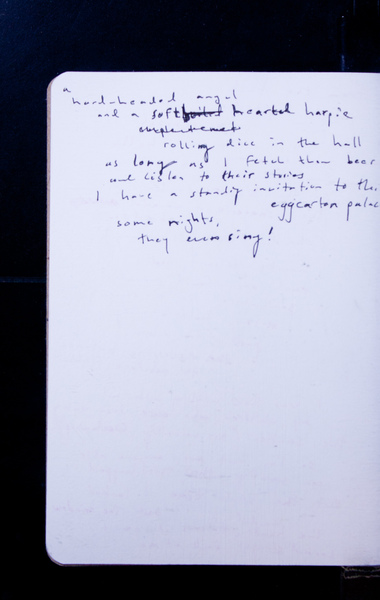 a
hard-headed angel
and a soft boiled hearted harpie
rolling dice in the hall
as long as I fetch them beer
and listen to their stories
I have a standing invitation to the
eggcarton palac
some nights,
they even sing!